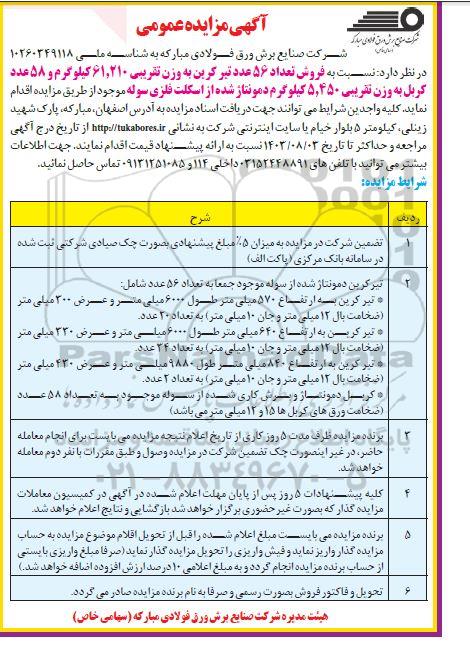 آگهی مزایده عمومی
شرکت صنایع برش ورق فولادی مبارکه
(سهامی خاص)
شــرکت صنایع برش ورق فــولادی مبارکه به شناسه ملــی ۱۰۲۶۰۳۴۹۱۱۸
در نظر دارد: نسبت به فروش تعداد ۵۶ عدد تیر کرین به وزن تقریبی ۶۱,۲۱۰ کیلوگرم و ۵۸ عدد
کربل به وزن تقریبی ۵,۴۵۰ کیلوگرم دمونتاژ شده از اسکلت فلزی سوله موجود از طریق مزایده اقدام
نماید. کلیه واجدین شرایط می توانند جهت دریافت اسناد مزایده به آدرس اصفهان، مبارکه، پارک شهید
زینلی، کیلومتر ۵ بلوار خیام یا سایت اینترنتی شرکت به نشانی http://tukabores.ir از تاریخ درج آگهی
مراجعه و حداکثر تا تاریخ ۱۴۰۲/۰۸/۰۳ نسبت به ارائه پیشــنهاد قیمت اقدام نمایند. جهت اطلاعات
بیشتر می توانید با تلفن های ۰۳۱۵۲۴۴۸۸۹۱ داخلی ۱۱۴ و ۰۹۱۳۱۲۵۱۰۸۵ تماس حاصل نمائید.
شرایط مزایده:
ردیف شرح
۱ تضمین شرکت در مزایده به میزان ۵٪ مبلغ پیشنهادی بصورت چک صیادی شرکتی ثبت شده
در سامانه بانک مرکزی (پاکت الف)
۲ تیر کرین دمونتاژ شده از سوله موجود جمعا به تعداد ۵۶ عدد شامل:
* تیر کریــن بــه ارتفــاع ۵۷۰ میلی متر طــول ۶۰۰۰ میلی متــر و عــرض ۳۰۰ میلی متر
(ضخامت بال ۱۲ میلی متر و جان ۱۰ میلی متر) به تعداد ۲۰ عدد.
* تیر کریــن به ارتفــاع ۶۴۰ میلی متر طــول ۶۰۰۰ میلی متر و عــرض ۳۳۰ میلی متر
(ضخامت بال ۱۲ میلی متر و جان ۱۰ میلی متر) به تعداد ۳۴ عدد.
* تیر کرین به ارتفــاع ۸۴۰ میلی متــر طول ۹۸۸۰ میلی متر و عرض ۴۳۰ میلی متر
(ضخامت بال ۱۲ میلی متر و جان ۱۰ میلی متر) به تعداد ۲ عدد.
* کربــل دمونتــاژ و بــرش کاری شــده از ســوله موجــود بــه تعــداد ۵۸ عــدد
(ضخامت ورق های کربل ها ۱۵ و ۱۲ میلی متر می باشد)
۳ برنده مزایده ظرف مدت ۵ روز کاری از تاریخ اعلام نتیجه مزایده می بایست برای انجام معامله
حاضر، در غیر اینصورت چک تضمین شرکت در مزایده وصول و طبق مقررات با نفر دوم معامله
خواهد شد.
۴ کلیه پیشــنهادات ۵ روز پس از پایان مهلت اعلام شــده در آگهی در کمیسیون معاملات
مزایده گذار که بصورت غیر حضوری برگزار خواهد شد بازگشایی و نتایج اعلام خواهد شد.
۵ برنده مزایده می بایســت مبلغ اعلام شــده را قبل از تحویل اقلام موضوع مزایده به حساب
مزایده گذار واریز نماید و فیش واریزی را تحویل مزایده گذار نماید (صرفا مبلغ واریزی بایستی
از حساب برنده مزایده انجام گردد و به مبلغ اعلامی ۱۰ درصد ارزش افزوده اضافه خواهد شد.)
۶ تحویل و فاکتور فروش بصورت رسمی و صرفا به نام برنده مزایده صادر می گردد.
هیئت مدیره شرکت صنایع برش ورق فولادی مبارکه (سهامی خاص)
۰۲۱-۸۸۳۴۹۶۷۰-۵